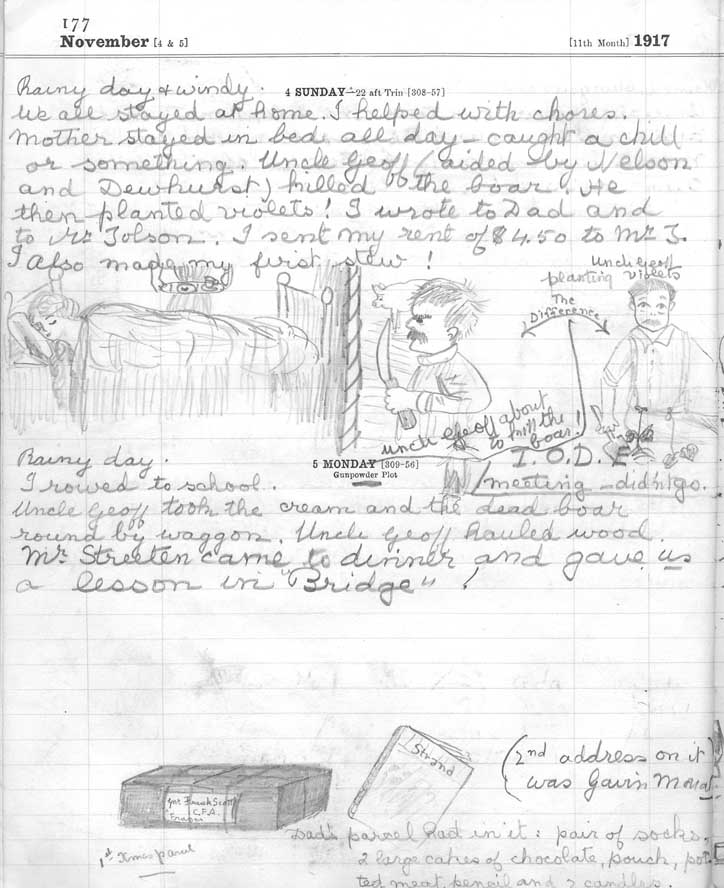 177
November [4 & 5] [11th Month] 1917
Rainy day & windy. 4 SUNDAY–22 aft Trin [308-57]
We all stayed at home. I helped with chores.
Mother stayed in bed all day – caught a chill
or something. Uncle Geoff (aided by Nelson
and Dewhurst) killed the boar. He
then planted violets! I wrote to Dad and
to Mr Tolson. I sent my rent of $4.50 to Mr T.
I Also made my first stew!
uncle Geoff
planting violets
The
Difference
uncle Geoff about
to kill the
boar!
Rainy day. 5 MONDAY [309-56]
Gunpowder Plot
I. O. D. E
meeting – didn't go.
I rowed to school.
Uncle Geoff took the cream and the dead boar
round by waggon. Uncle Geoff hauled wood.
Mr Streeten came to dinner and gave us
a lesson in "Bridge" !
Strand
(2nd address on it
was Gavin Mouat.
Frank Scott
C.F.A.
France
1st Xmas parcel
Dad's parcel had in it: pair of socks,
2 large cakes of chocolate, pouch, pot-
ted meat, pencil and 2 candles.